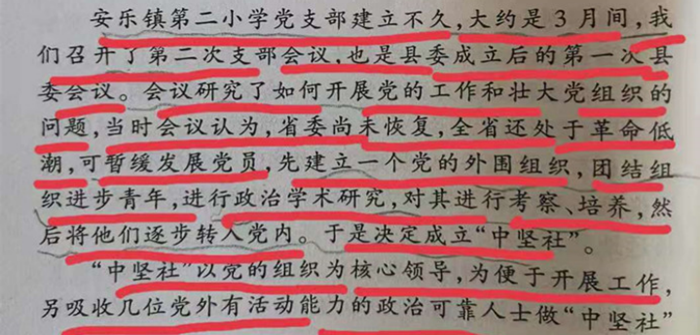 安乐镇第二小学党支部建立不久,大约是3月间,我
们召开了第二次支部会议,也是县委成立后的第一次县
委会议。会议研究了如何开展党的工作和壮大党组织的
问题,当时会议认为,省委尚未恢复,全省还处于革命低
潮,可暂缓发展党员,先建立一个党的外围组织,团结组
织进步青年,进行政治学术研究,对其进行考察、培养,然
后将他们逐步转入党内。于是决定成立“中坚社”。
“中坚社”以党的组织为核心领导,为便于开展工作,
另吸收几位党外有活动能力的政治可靠人士做“中坚社”